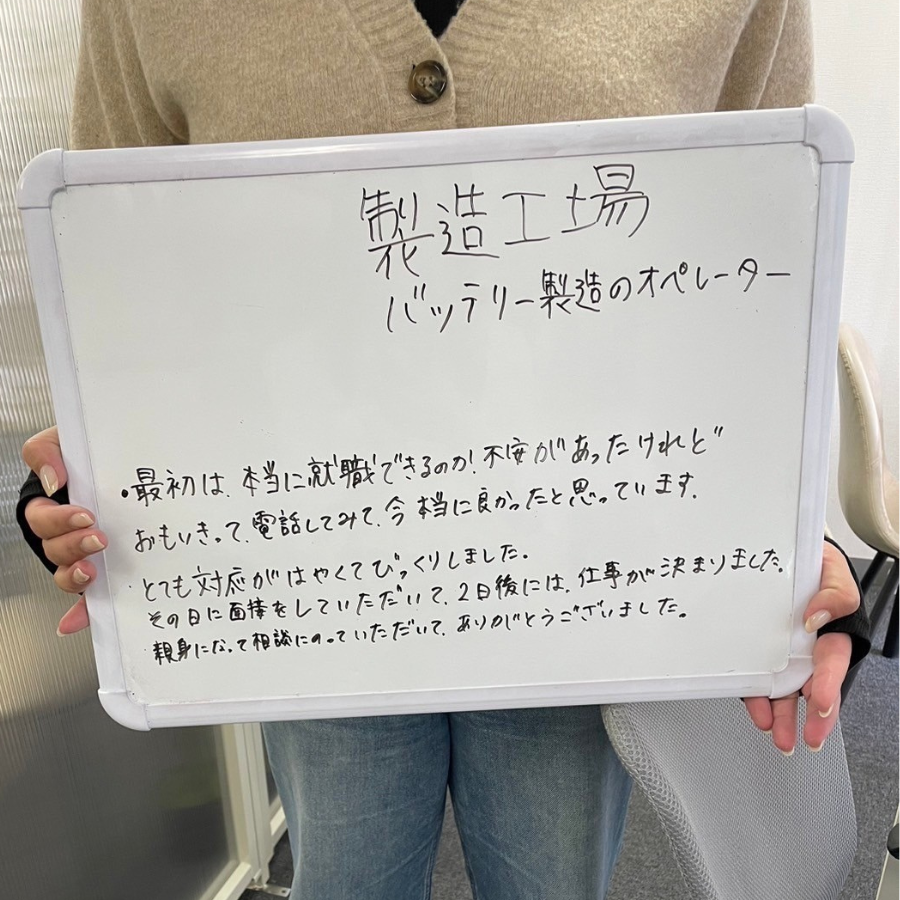 製造工場
バッテリー製造のオペレーター
・最初は、本当に就職できるのか!不安があったけれど
おもいきって、電話してみて、今本当に良かったと思っています。
・とても対応がはやくてびっくりしました。
その日に面接をしていただいて、2日後には、仕事が決まりました。
親身になって相談にのっていただいて、ありがとうございました。